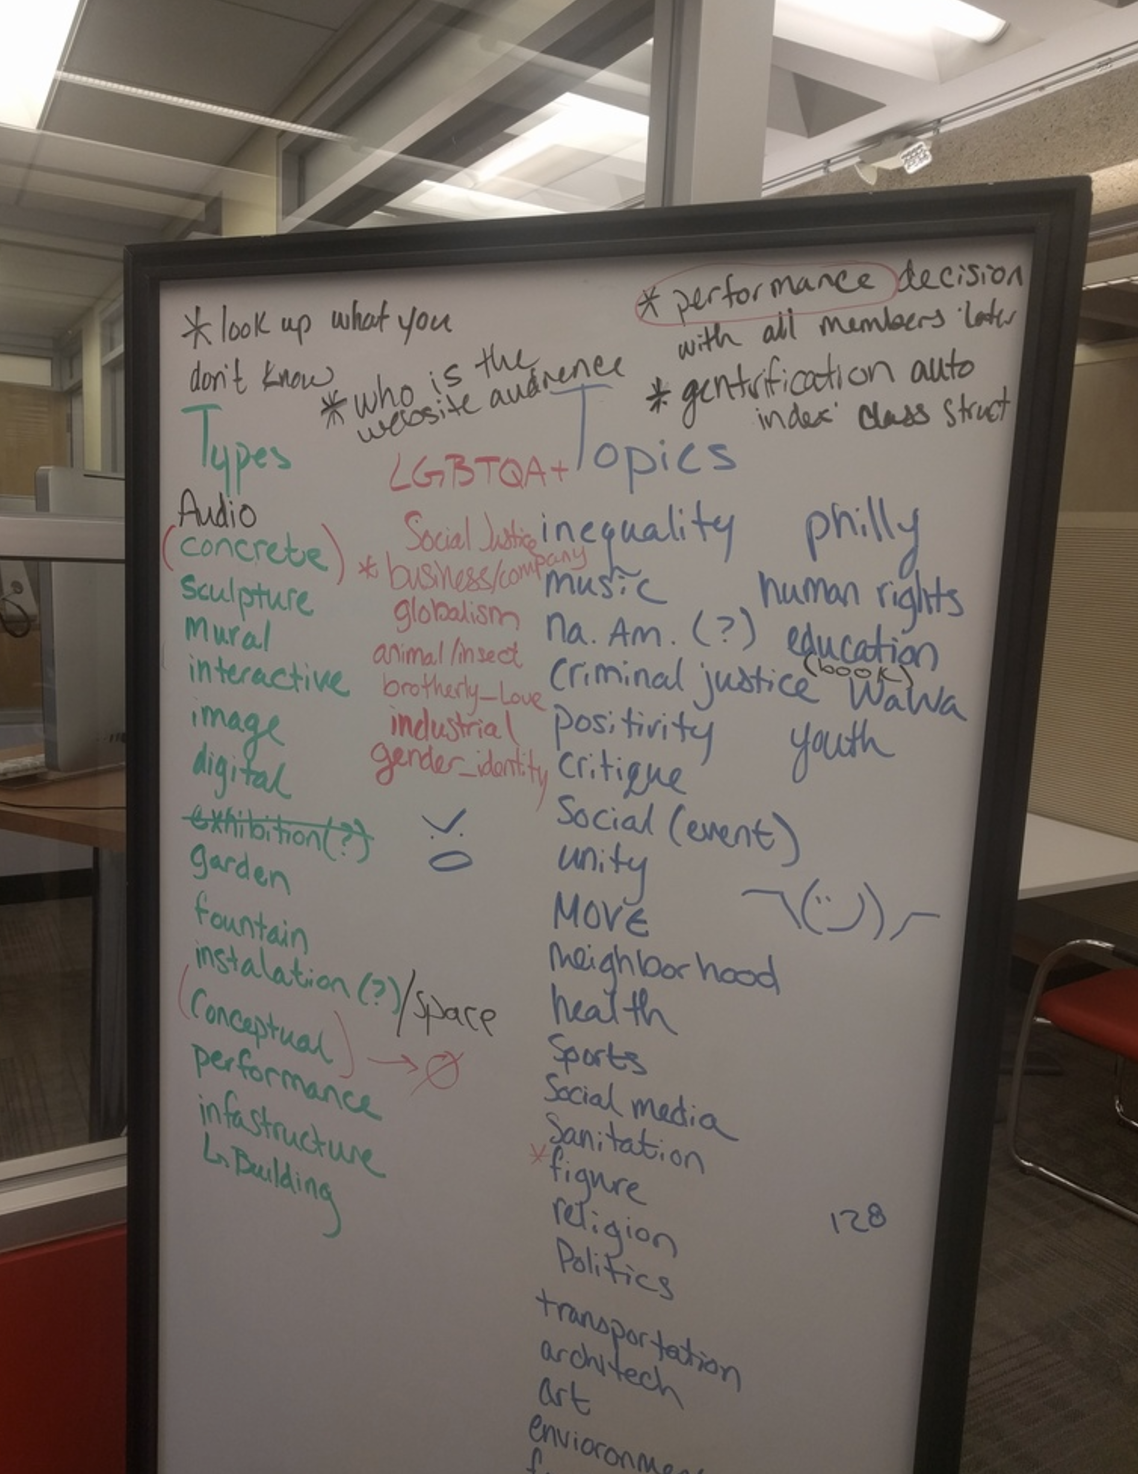 * look up what you
don't know
* who is the
website audience
* performance decision
with all members later
* gentrification auto
index class struct
Types
Audio
(concrete)
sculpture
mural
interactive
image
digital
exhibition(?)
garden
fountain
instalation (?)/space
(Conceptual) → Ø
performance
infastructure
Building
LGBTQA+
Social Justice
* business/company
globalism
animal/insect
brotherly_Love
industrial
gender_identity
Topics
inequality
music
Na. Am. (?)
Criminal justice
positivity
critique
Social (event)
unity
MOVE
neighborhood
health
Sports
Social media
Sanitation
*figure
religion
Politics
transportation
architech
art
philly
human rights
education
(book)
WaWa
youth
128